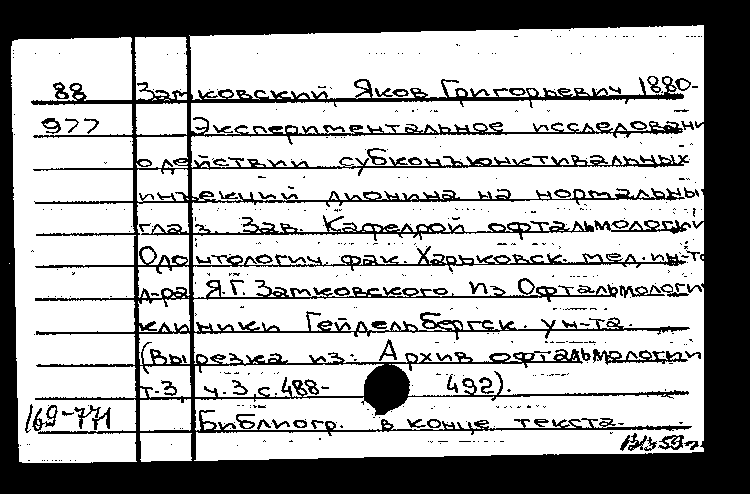 88 Замковский, Яков Григорьевич, 1880-
977 Экспериментальное исследовани
о действии субконъюнктивальных
инъекций дионина на нормальны
глаз. Зав. Кафедрой офтальмологии
Одонтологич. фак. Харьковск. мед. ин-та
д-ра Я.Г. Замковского. Из Офтальмологи
клиники Гейдельбергск. ун-та.
(Вырезка из: Архив офтальмологии
т.3, ч.3, с.488- 492).
169-771 Библиогр. в конце текста.